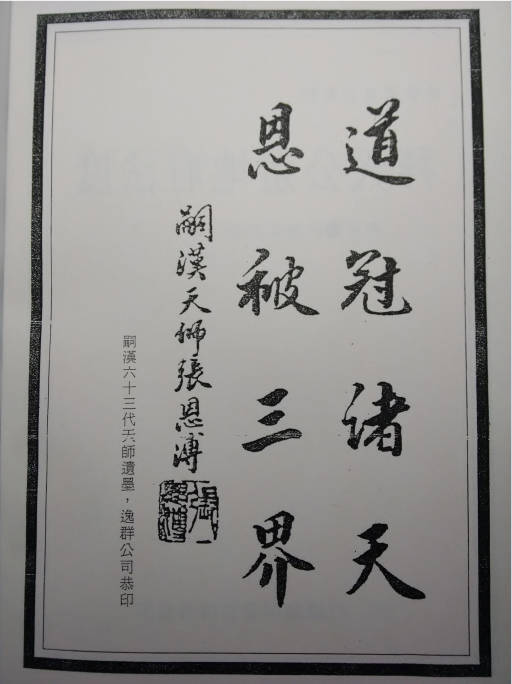 道冠诸天
恩被三界
嗣漢天师張恩溥
嗣漢六十三代天師遺墨，逸群公司恭印